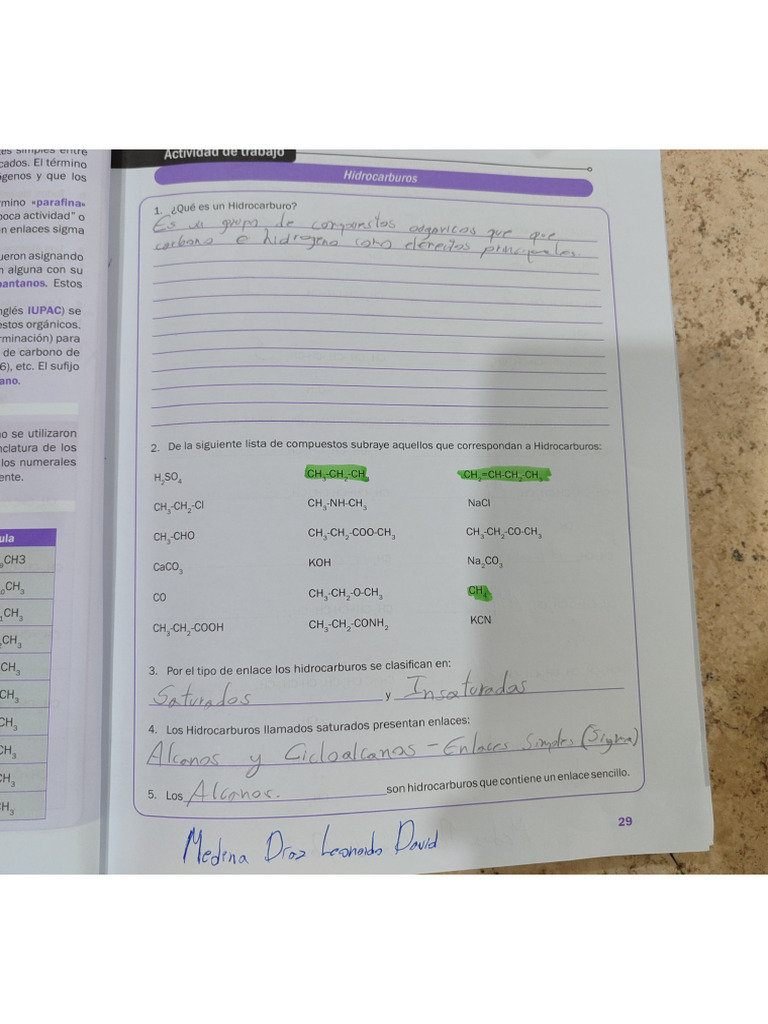 es simples entre
cados. El término
ógenos y que los
rmino «parafina»
poca actividad" o
n enlaces sigma
ueron asignando
n alguna con su
pantanos. Estos
nglés IUPAC) se
estos orgánicos,
rminación) para
de carbono de
6), etc. El sufijo
ano.
no se utilizaron
nclatura de los
los numerales
ente.
ula
₉CH3
₀CH₃
₁CH₃
₂CH₃
CH₃
CH₃
CH₃
CH₃
CH₃
H₃
Actividad de trabajo
Hidrocarburos
1. ¿Qué es un Hidrocarburo?
Es un grupo de compuestos orgánicos que que
carbono e hidrogeno como elementos principales.
2. De la siguiente lista de compuestos subraye aquellos que correspondan a Hidrocarburos:
H₂SO₄ CH₃-CH₂-CH₃ CH₂=CH-CH₂-CH₃
CH₃-CH₂-Cl CH₃-NH-CH₃ NaCl
CH₃-CHO CH₃-CH₂-COO-CH₃ CH₃-CH₂-CO-CH₃
CaCO₃ KOH Na₂CO₃
CO CH₃-CH₂-O-CH₃ CH₄
CH₃-CH₂-COOH CH₃-CH₂-CONH₂ KCN
3. Por el tipo de enlace los hidrocarburos se clasifican en:
Saturados y Insaturadas
4. Los Hidrocarburos llamados saturados presentan enlaces:
Alcanos y Cicloalcanos - Enlaces Simples (Sigma)
5. Los Alcanos. son hidrocarburos que contiene un enlace sencillo.
29
Medina Diaz Leonardo David